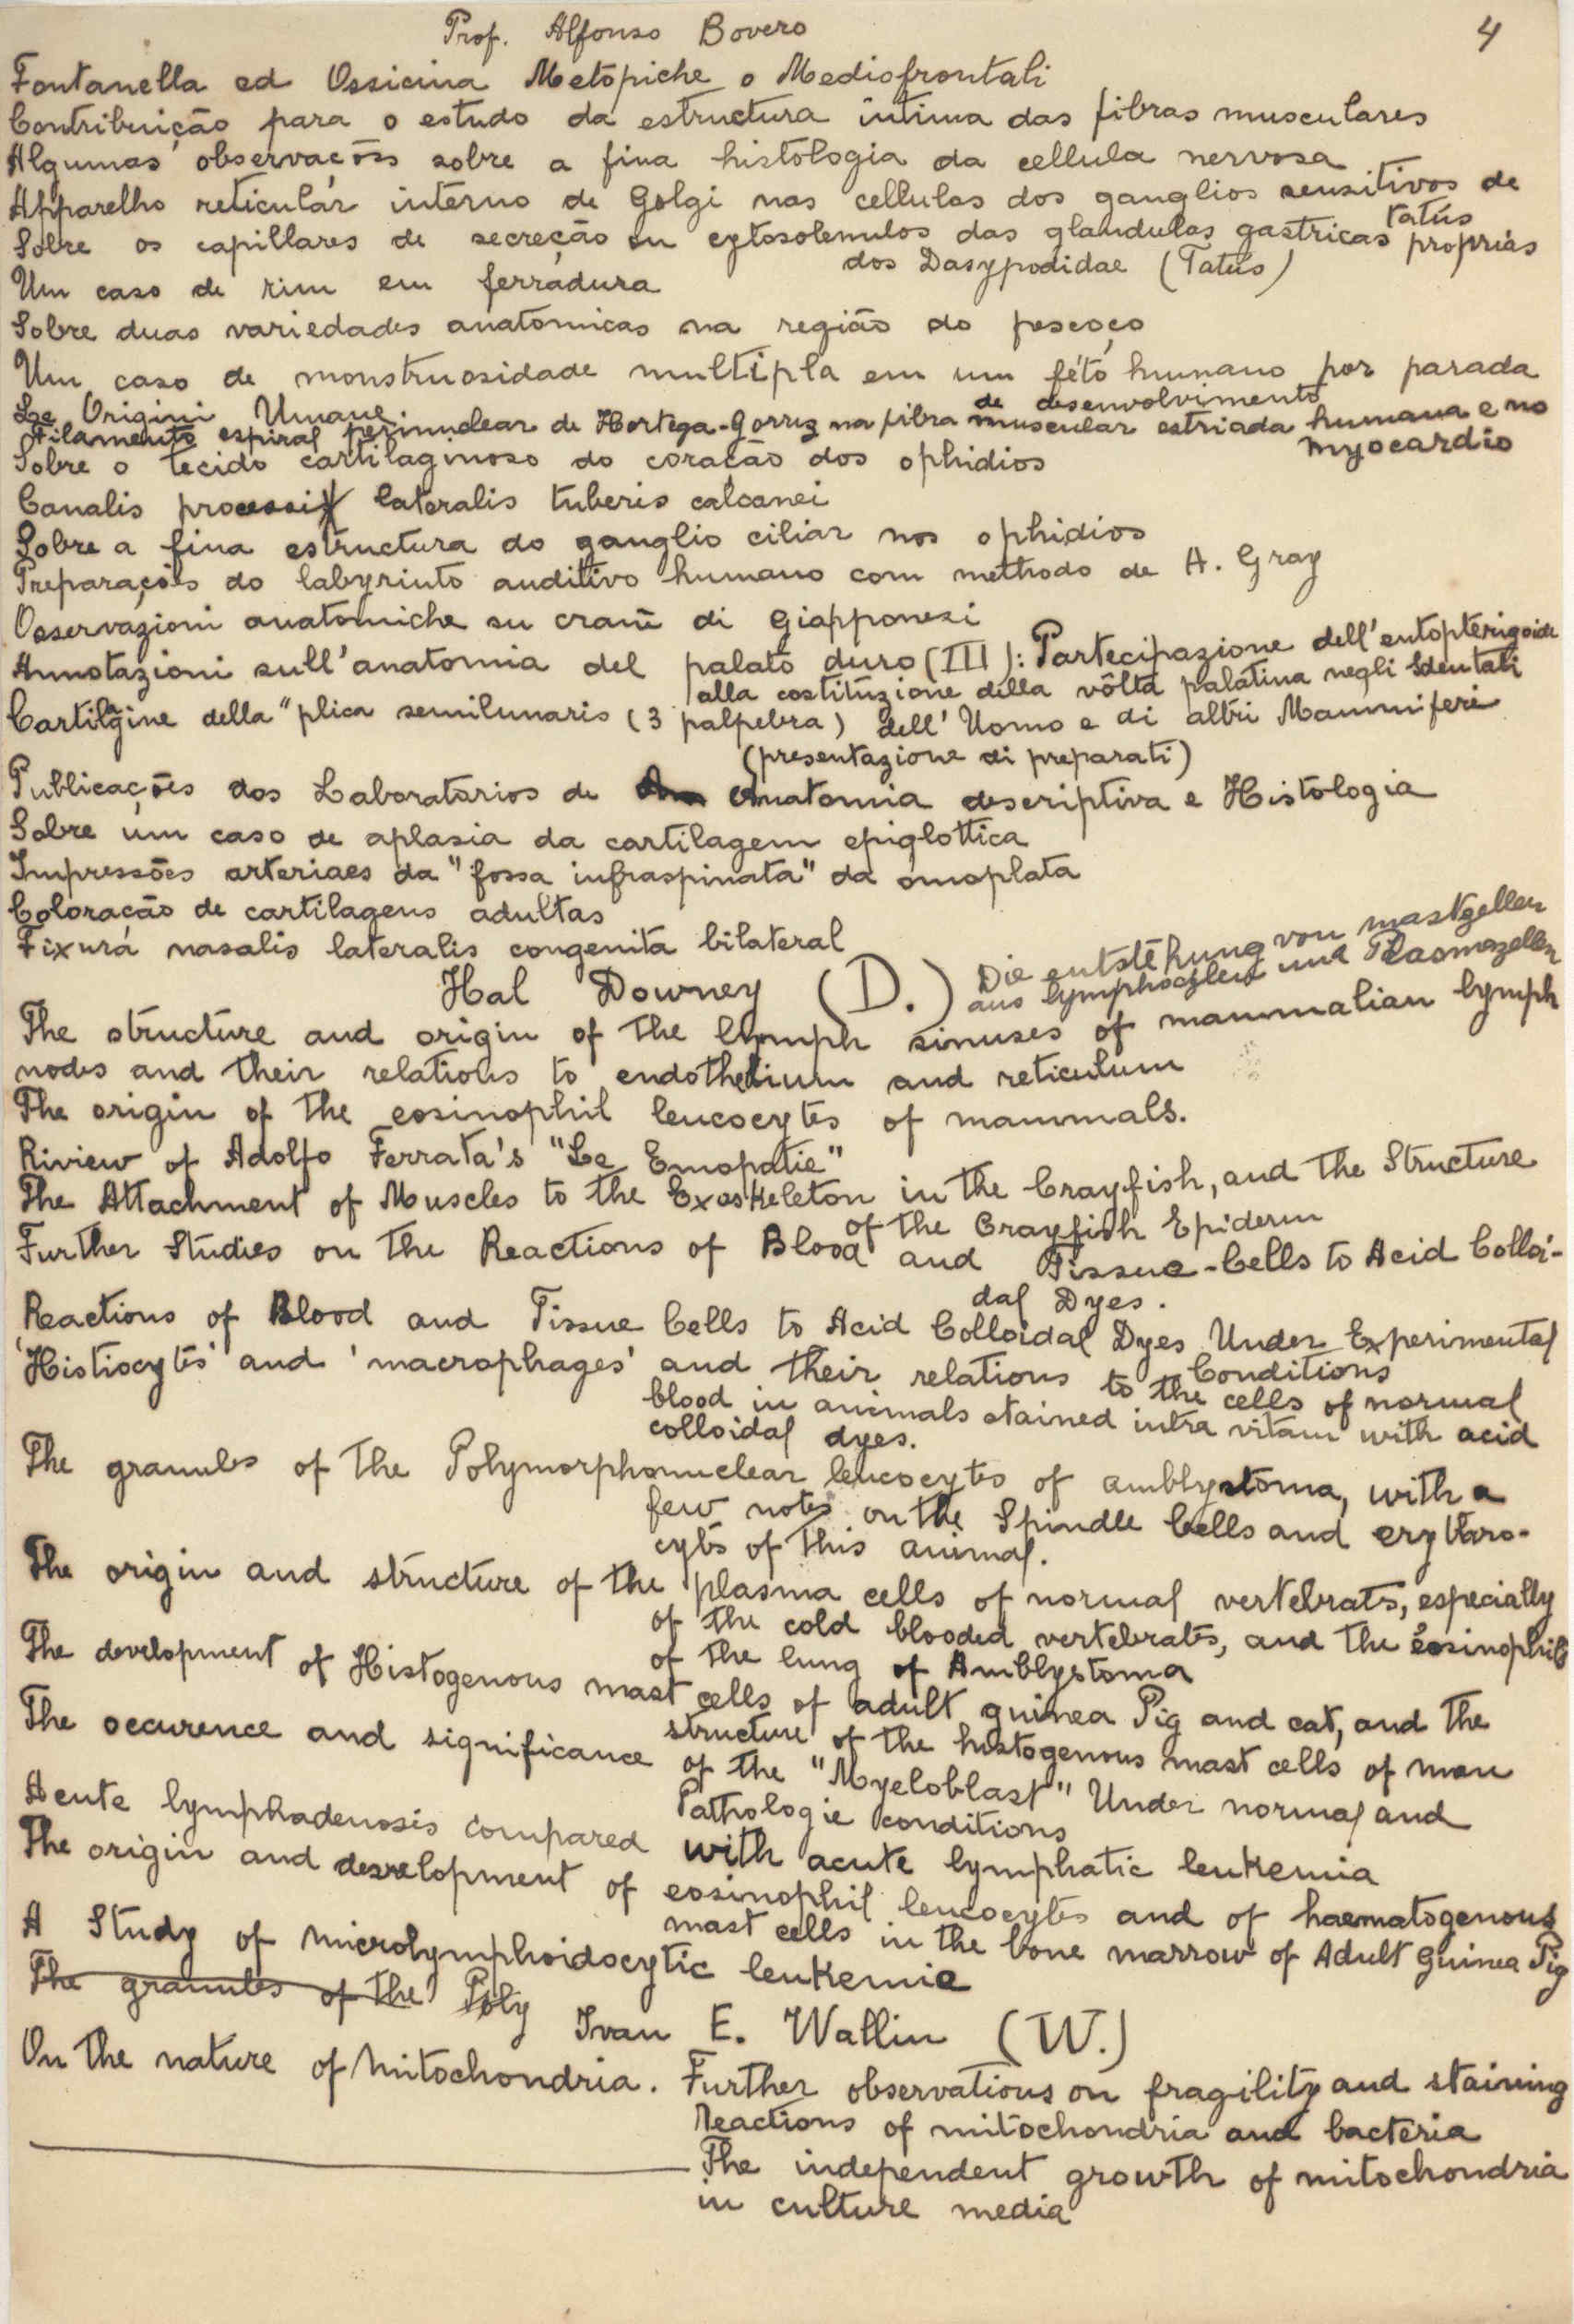 Prof. Alfonso Bovero
4
Fontanella ed Ossicina Metopiche o Mediofrontali
Contribuição para o estudo da estructura intima das fibras musculares
Algumas observações sobre a fina histologia da cellula nervosa
Apparelho reticular interno de Golgi nas cellulas dos ganglios sensitivos de
tatús
Sobre os capillares de secreção ou cytosolemulos das glandulas gastricas proprias
dos Dasypodidae (Tatús)
Um caso de rim em ferradura
Sobre duas variedades anatomicas na região do pescoço
Um caso de monstruosidade multipla em um féto humano por parada
de desenvolvimento
Le Origini Umane
Filamento espiral perinuclear de Hortega-Gorriz na fibra muscular estriada humana e no
myocardio
Sobre o tecido cartilaginoso do coração dos ophidios
Canalis processi lateralis tuberis calcanei
Sobre a fina estructura do ganglio ciliar nos ophidios
Preparações do labyrinto auditivo humano com methodo de A. Gray
Osservazioni anatomiche su crani di Giapponesi
Annotazioni sull'anatomia del palato duro (III): Partecipazione dell'entopterigoide
alla costituzione della vôlta palatina negli Sdentati
Cartilagine della "plica semilunaris (3 palpebra) dell' Uomo e di altri Mammiferi
(presentazione di preparati)
Publicações dos Laboratorios de Anatomia descriptiva e Histologia
Sobre um caso de aplasia da cartilagem epiglottica
Impressões arteriaes da "fossa infraspinata" da omoplata
Coloração de cartilagens adultas
Fixura nasalis lateralis congenita bilateral
Hal Downey (D.)
Die entstehung von mastzellen
aus lymphocyten und Plasmazellen
The structure and origin of the lymph sinuses of mammalian lymph
nodes and their relations to endothelium and reticulum
The origin of the eosinophil leucocytes of mammals.
Riview of Adolfo Ferrata's "Le Emopatie"
The Attachment of Muscles to the Exoskeleton in the Crayfish, and the Structure
of the Crayfish Epiderm
Further Studies on the Reactions of Blood and Tissue-Cells to Acid Colloi-
dal Dyes.
Reactions of Blood and Tissue Cells to Acid Colloidal Dyes Under Experimental
Conditions
'Histiocytes' and 'macrophages' and their relations to the cells of normal
blood in animals stained intra vitam with acid
colloidal dyes.
The granules of the Polymorphonuclear leucocytes of amblystoma, with a
few notes on the Spindle Cells and erythro-
cyts of this animal.
The origin and structure of the plasma cells of normal vertebrats, especially
of the cold blooded vertebrates, and the eosinophils
of the lung of Amblystoma
The development of Histogenous mast cells of adult guinea Pig and cat, and the
structure of the histogenous mast cells of man
The occurence and significance of the "Myeloblast" Under normal and
Pathologic conditions
Acute lymphadenosis compared with acute lymphatic leukemia
The origin and desvelopment of eosinophil leucocytes and of haematogenous
mast cells in the bone marrow of Adult Guinea Pig
A Study of microlymphoidocytic leukemia
The granules of the Poly
Ivan E. Wallin (W.)
On the nature of mitochondria. Further observations on fragility and staining
reactions of mitochondria and bacteria
The independent growth of mitochondria
in culture media